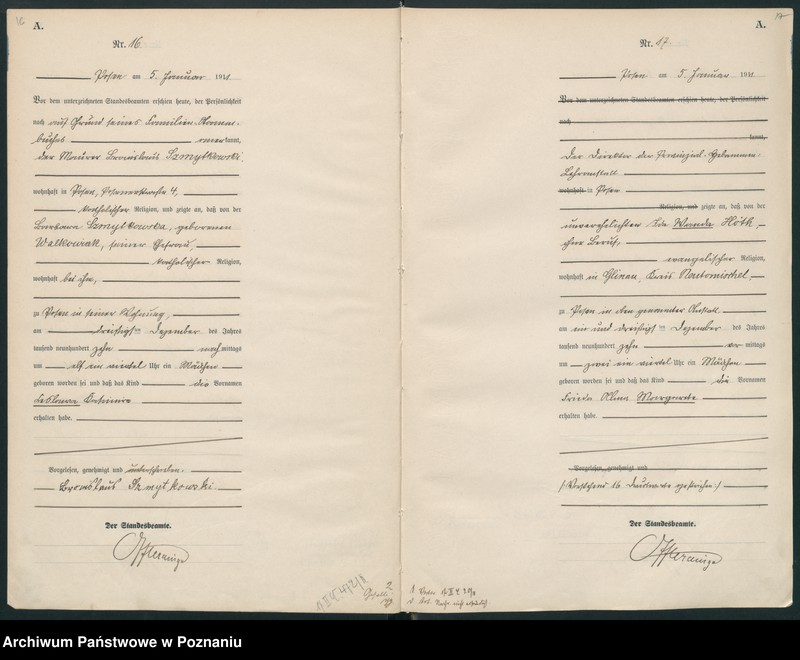 16
A.
Nr. 16
Posen am 5. Januar 1911
Vor dem unterzeichneten Standesbeamten erschien heute, der Persönlichkeit
nach auf Grund seines Familien-Stamm-
buchs kannt,
der Maurer Bronislaus Szmytkowski
wohnhaft in Posen, Posenerstraße 4,
katholischer Religion, und zeigte an, daß von der
Barbara Szmytkowska, geborenen
Walkowiak, seiner Ehefrau,
katholischer Religion,
wohnhaft bei ihm,
zu Posen in seiner Wohnung,
am dreißigsten Dezember des Jahres
tausend neunhundert zehn nachmittags
um elf ein viertel Uhr ein Mädchen
geboren worden sei und daß das Kind die Vornamen
Casimira
erhalten habe.
Vorgelesen, genehmigt und unterschrieben.
Bronislaus Szmytkowski
Der Standesbeamte.
17
A.
Nr. 17
Posen am 5. Januar 1911
Vor dem unterzeichneten Standesbeamten erschien heute, der Persönlichkeit
nach
kannt,
Der Direktor der Provinzial-Hebammen-
Lehranstalt
wohnhaft in Posen
Religion, und zeigte an, daß von der
unverehelichten Ida Wanda Hoth,
ohne Beruf,
evangelischer Religion,
wohnhaft in Glinau, Kreis Neutomischel,
zu Posen in der genannten Anstalt
am ein und dreißigsten Dezember des Jahres
tausend neunhundert zehn vormittags
um zwei ein viertel Uhr ein Mädchen
geboren worden sei und daß das Kind die Vornamen
Frieda Alma Margarete
erhalten habe.
Vorgelesen, genehmigt und
/:Vorstehend 16 Druckworte gestrichen:/
Der Standesbeamte.
Archiwum Państwowe w Poznaniu